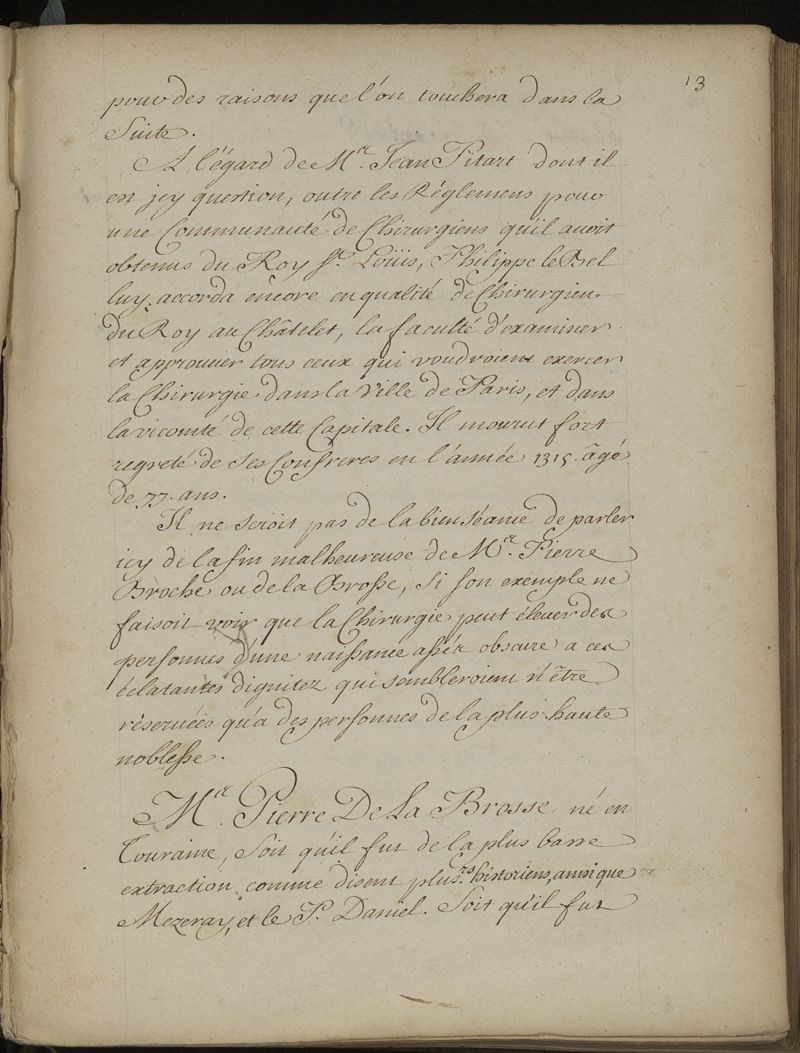 13
pour des raisons que l'on touchera dans la
Suite.
A l'égard de Me. Jean Pitart dont il
en jcy question, outre les Réglemens pour
une Communauté de Chirurgiens qu'il avoit
obtenus du Roy St. Loüis, Philippe le Bel
luy accorda encore en qualité de Chirurgien
du Roy au Châtelet, la faculté d'examiner
et approuver tous ceux qui voudroient exercer
la Chirurgie dans la Ville de Paris, et dans
la vicomté de cette Capitale. Il mourut fort
regreté de ses Confreres en l'année 1315. âgé
de 77. ans.
Il ne seroit pas de la bienséance de parler
icy de la fin malheureuse de Me. Pierre
Broche ou de la Brosse, si son exemple ne
faisoit voir que la Chirurgie peut élever des
personnes d'une naissance assez obscure a ces
éclatantes dignitez qui sembleroient n'être
réservées qu'a des personnes de la plus haute
noblesse.
Me. Pierre De La Brosse né en
Touraine, Soit qu'il fut de la plus basse
extraction comme disent plusrs. historiens, ainsi que
Mezeray, et le P. Daniel. Soit qu'il fut